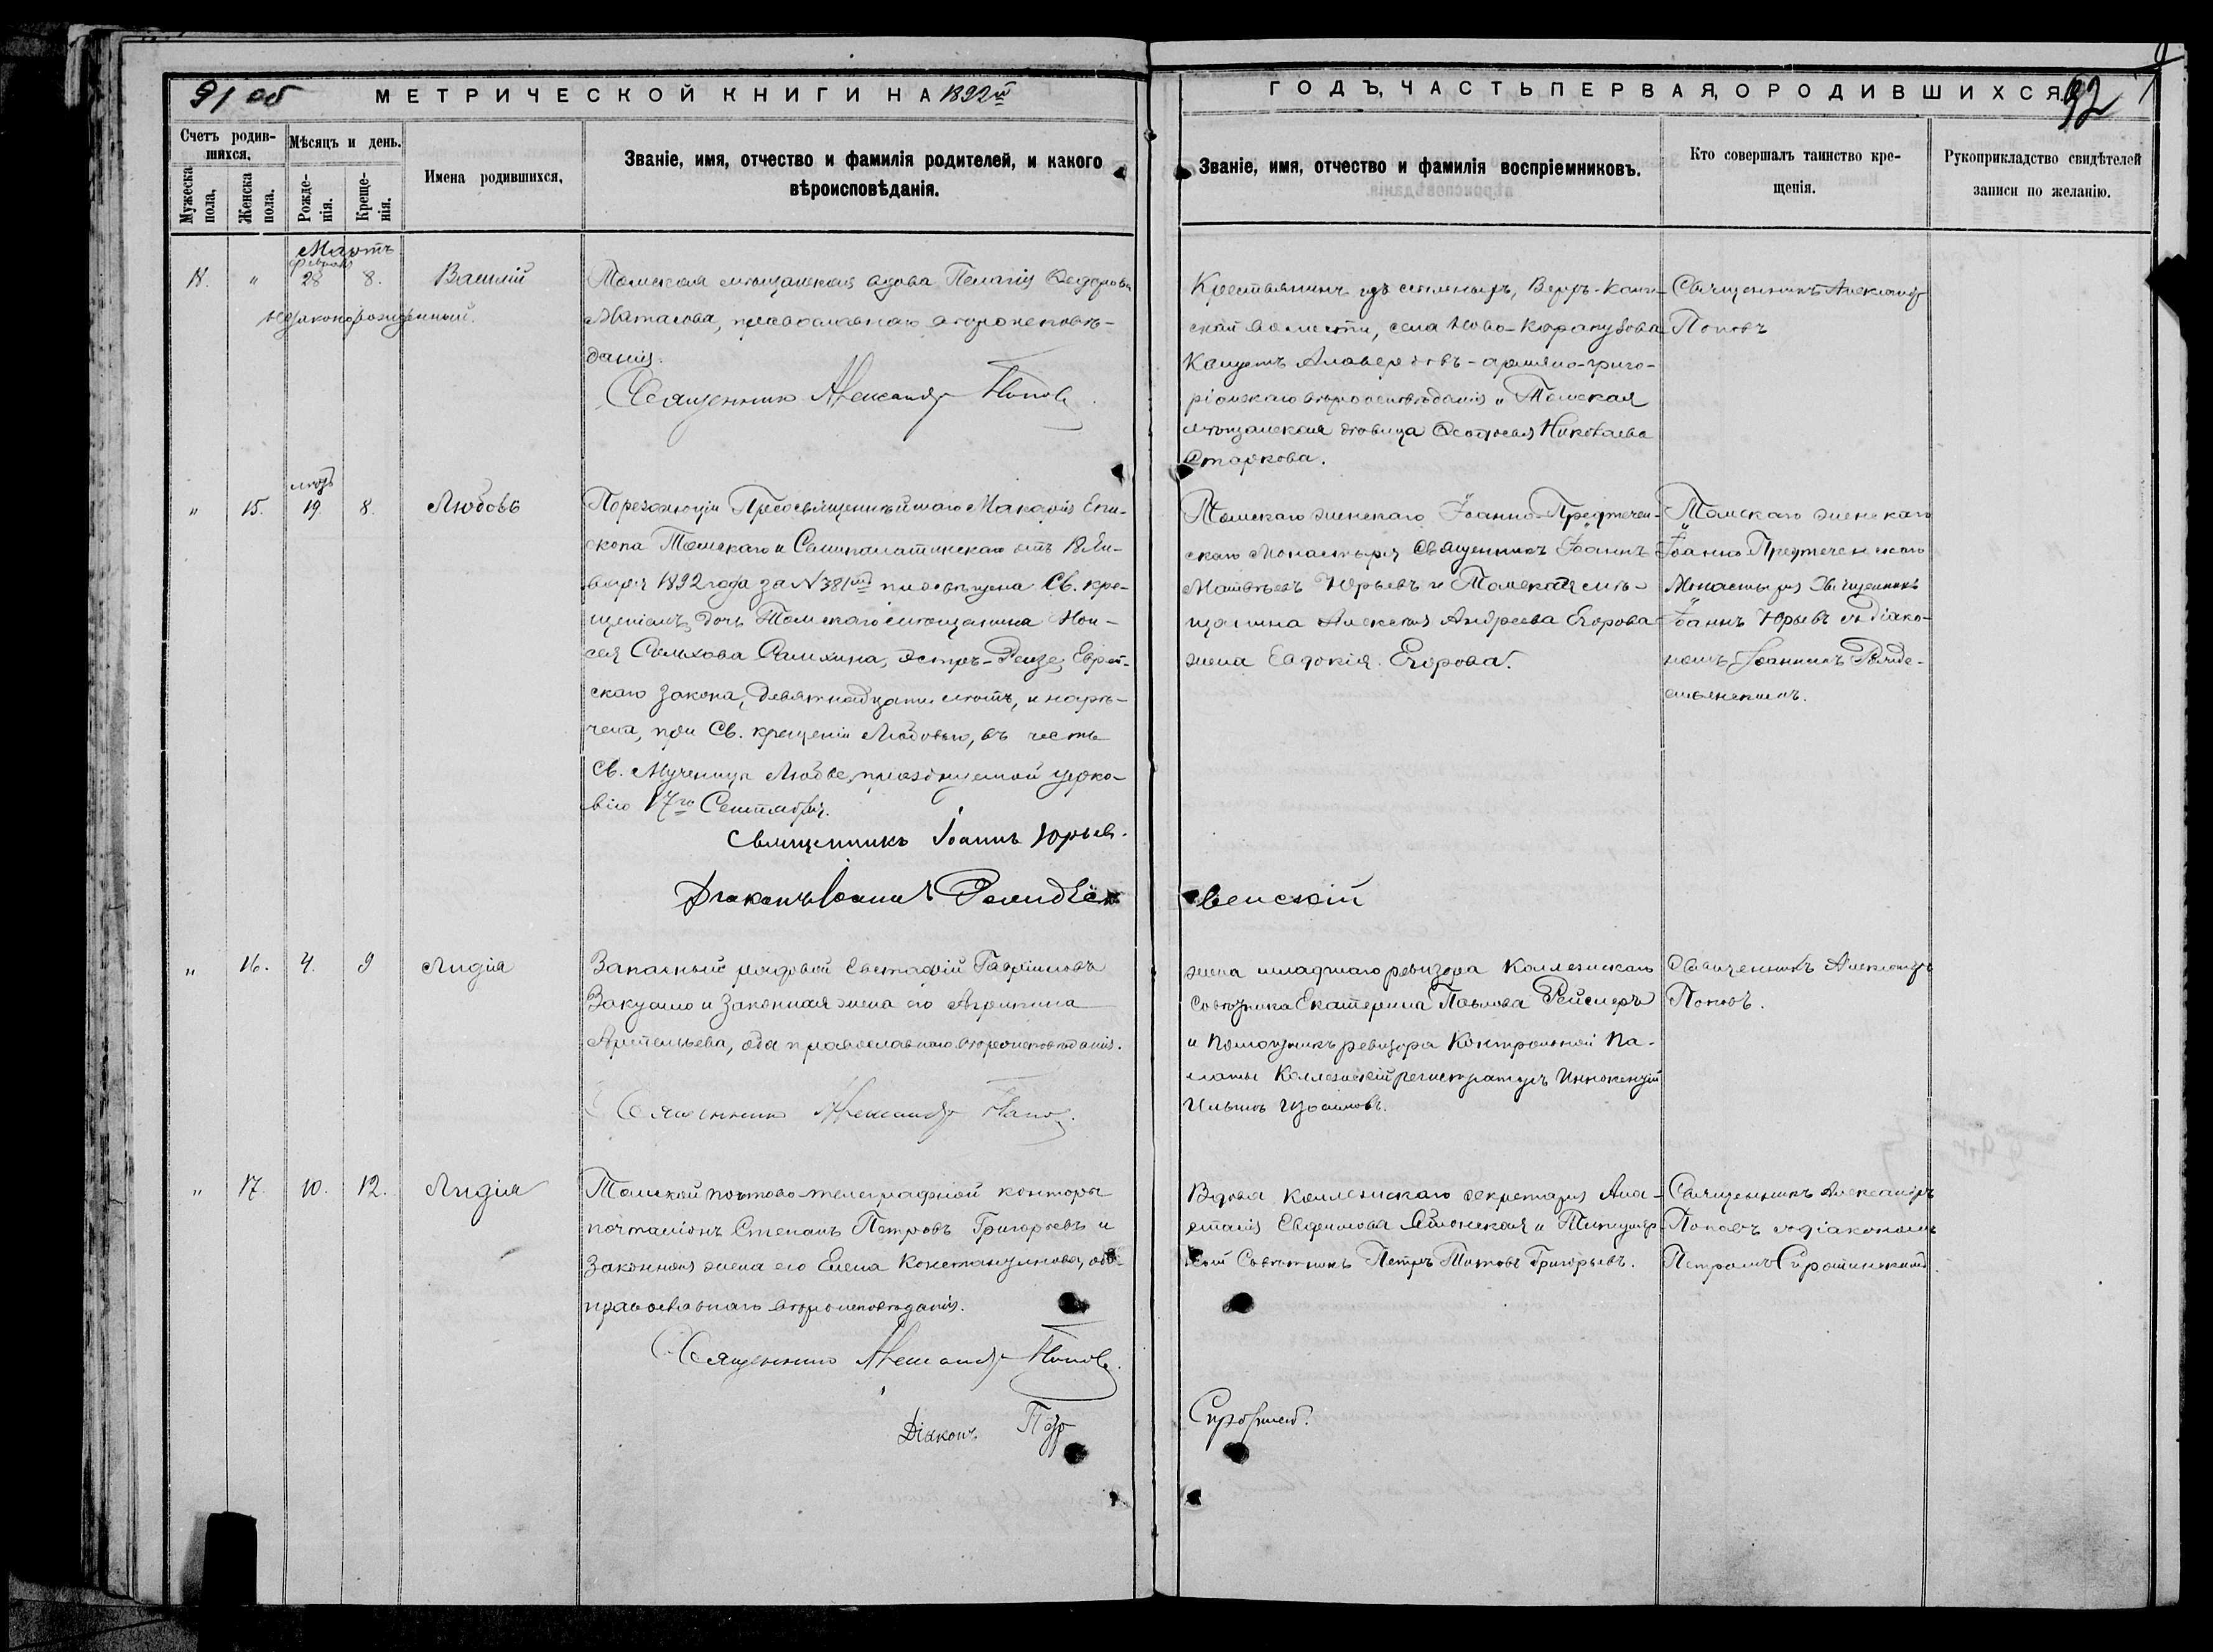 91 об
МЕТРИЧЕСКОЙ КНИГИ НА 1892й
ГОДЪ, ЧАСТЬ ПЕРВАЯ, О РОДИВШИХСЯ.
92
Счетъ родив-
шихся.
Мѣсяцъ и день.
Мужеска
пола.
Женска
пола.
Рожде-
нія.
Креще-
нія.
Имена родившихся.
Званіе, имя, отчество и фамилія родителей, и какого
вѣроисповѣданія.
Званіе, имя, отчество и фамилія воспріемниковъ.
Кто совершалъ таинство кре-
щенія.
Рукоприкладство свидѣтелей
записи по желанію.
Мартъ
28 8. Василій
незаконорожденный.
Томская мѣщанская вдова Пелагія Ѳедорова
православнаго вѣроисповѣ-
данія.
Священникъ Александръ Поповъ
Крестьянинъ изъ ссыльныхъ, Верхъ-Каин-
ской волости, села Ново-Карапузова
Алавердовъ-армяно-григо-
ріанскаго вѣроисповѣданія и Томская
мѣщанская дѣвица Николаева
Старкова.
Священникъ Александръ
Поповъ
" 15. 19 8. Любовь
лѣтъ
По резолюціи Преосвященнѣйшаго Макарія Епи-
скопа Томскаго и Семипалатинскаго отъ 18 Ян-
варя 1892 года за № 381мъ просвѣщена Св. кре-
щеніемъ дочь Томскаго мѣщанина Мои-
сея Еврей-
скаго закона, девятнадцати лѣтъ, и наре-
чена, при Св. крещеніи Любовью, въ честь
Св. Мученицы Любве, празднуемой церко-
вію 17го Сентября.
Священникъ Іоаннъ Юрьевъ.
Діаконъ Іоаннъ
венскій
Томскаго женскаго Іоанно-Предтечен-
скаго Монастыря Священникъ Іоаннъ
Матвѣевъ Юрьевъ и Томская мѣ-
щанина Алексѣя Андреева Егорова
жена Евдокія Егорова.
Томскаго женскаго
Іоанно Предтеченскаго
Монастыря Священникъ
Іоаннъ Юрьевъ съ діако-
номъ Іоанномъ
" 16. 4. 9 Лидія
Запасный рядовой Евстафій Гавріиловъ
и законная жена его Агрипина
оба православнаго вѣроисповѣданія.
Священникъ Александръ Поповъ.
жена младшаго ревизора Коллежскаго
Совѣтника Екатерина Павлова Рейснеръ
и Помощникъ ревизора Контрольной Па-
латы Коллежскій регистраторъ Иннокентій
Ильинъ
Священникъ Александръ
Поповъ.
" 17. 10. 12. Лидія
Томской почтово-телеграфной конторы
почталіонъ Степанъ Петровъ Григорьевъ и
законная жена его Елена Константинова, оба
православнаго вѣроисповѣданія.
Священникъ Александръ Поповъ.
Діаконъ Петр
Вдова Коллежскаго секретаря Ана-
стасія Евфимова и Титуляр-
ный Совѣтникъ Петръ Титовъ Григорьевъ.
Священникъ Александръ
Поповъ съ діакономъ
Петромъ